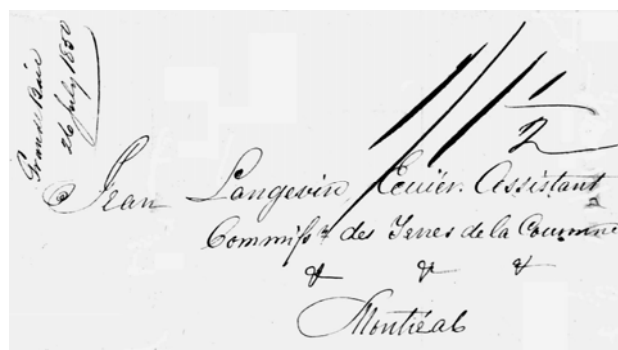 Grande Baie
26 July 1850
1/1 1/2
Jean Langevin, Ecuier. Assistant
Commissr des Terres de la Couronne
& & &
Montréal